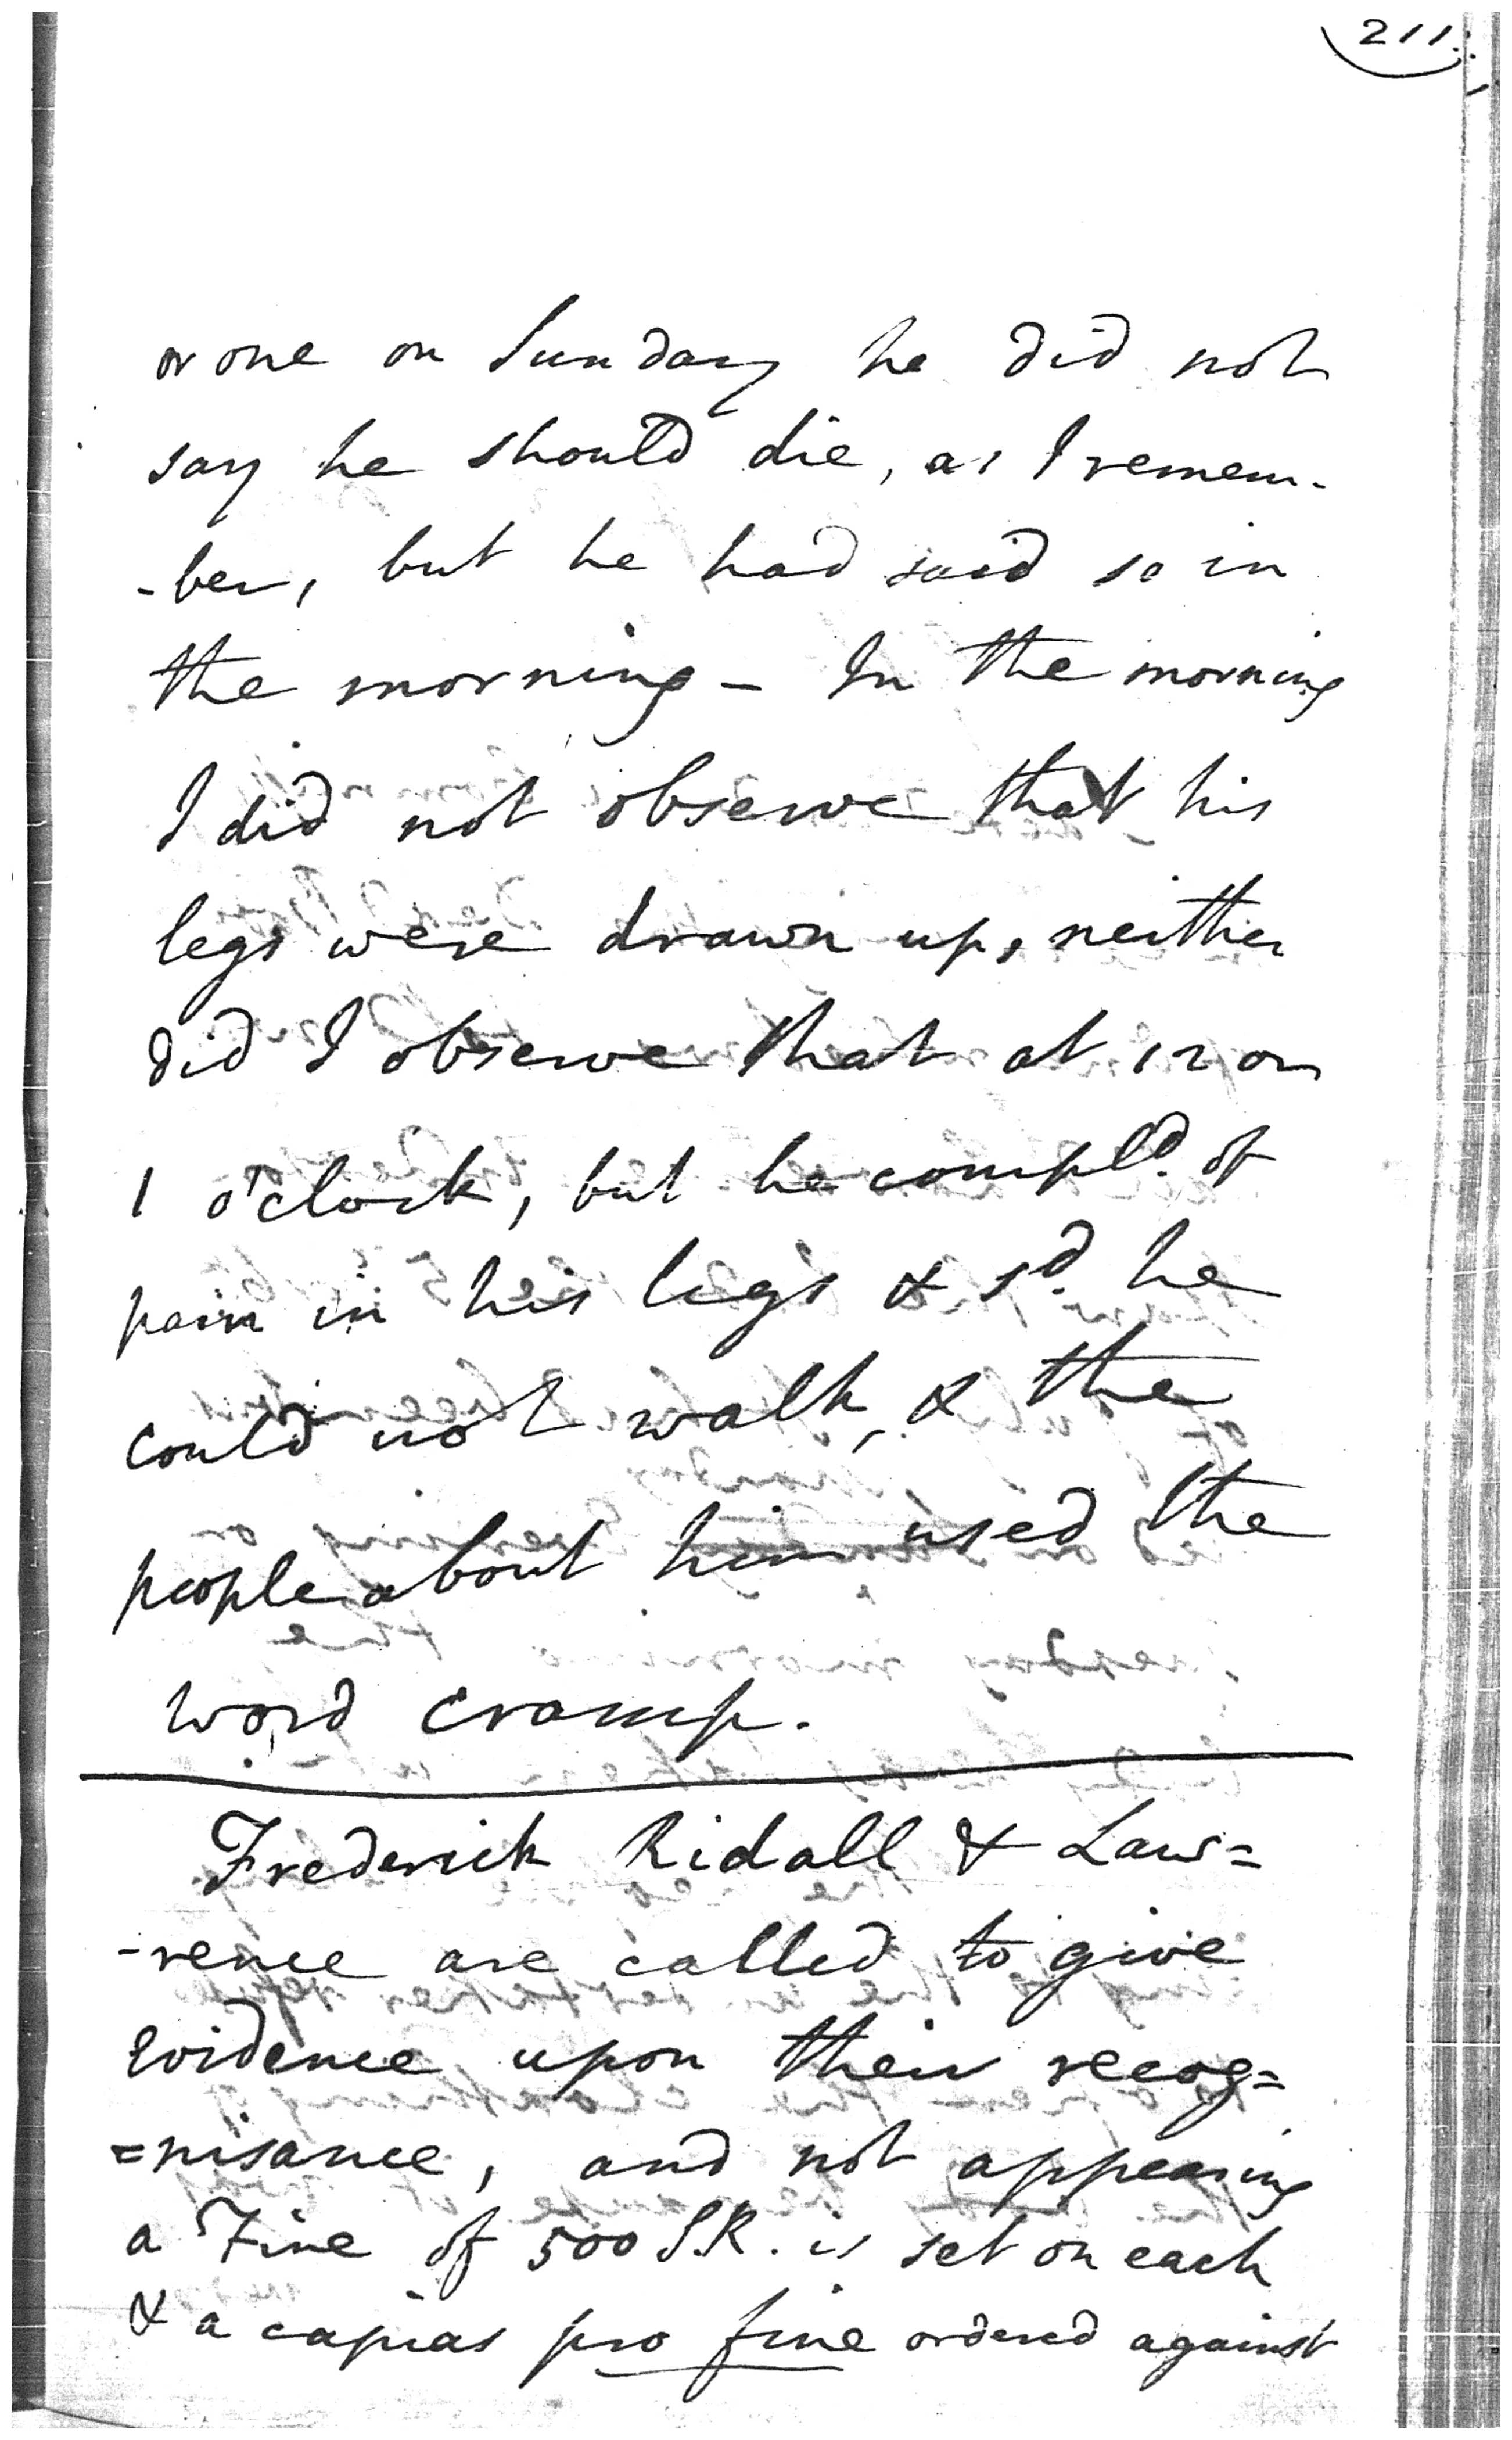 211.
or one on Sunday he did not
say he should die, as I remem-
-ber, but he had said so in
the morning - In the morning
I did not observe that his
legs were drawn up, neither
did I observe that at 12 or
1 o'clock, but he compld. of
pain in his legs & sd. he
could not walk, & the
people about him used the
word cramp.
Frederick Ridall & Law=
-rence are called to give
evidence upon their recog=
=nisance, and not appearing
a Fine of 500 S.R. is set on each
& a capias pro fine ordered against